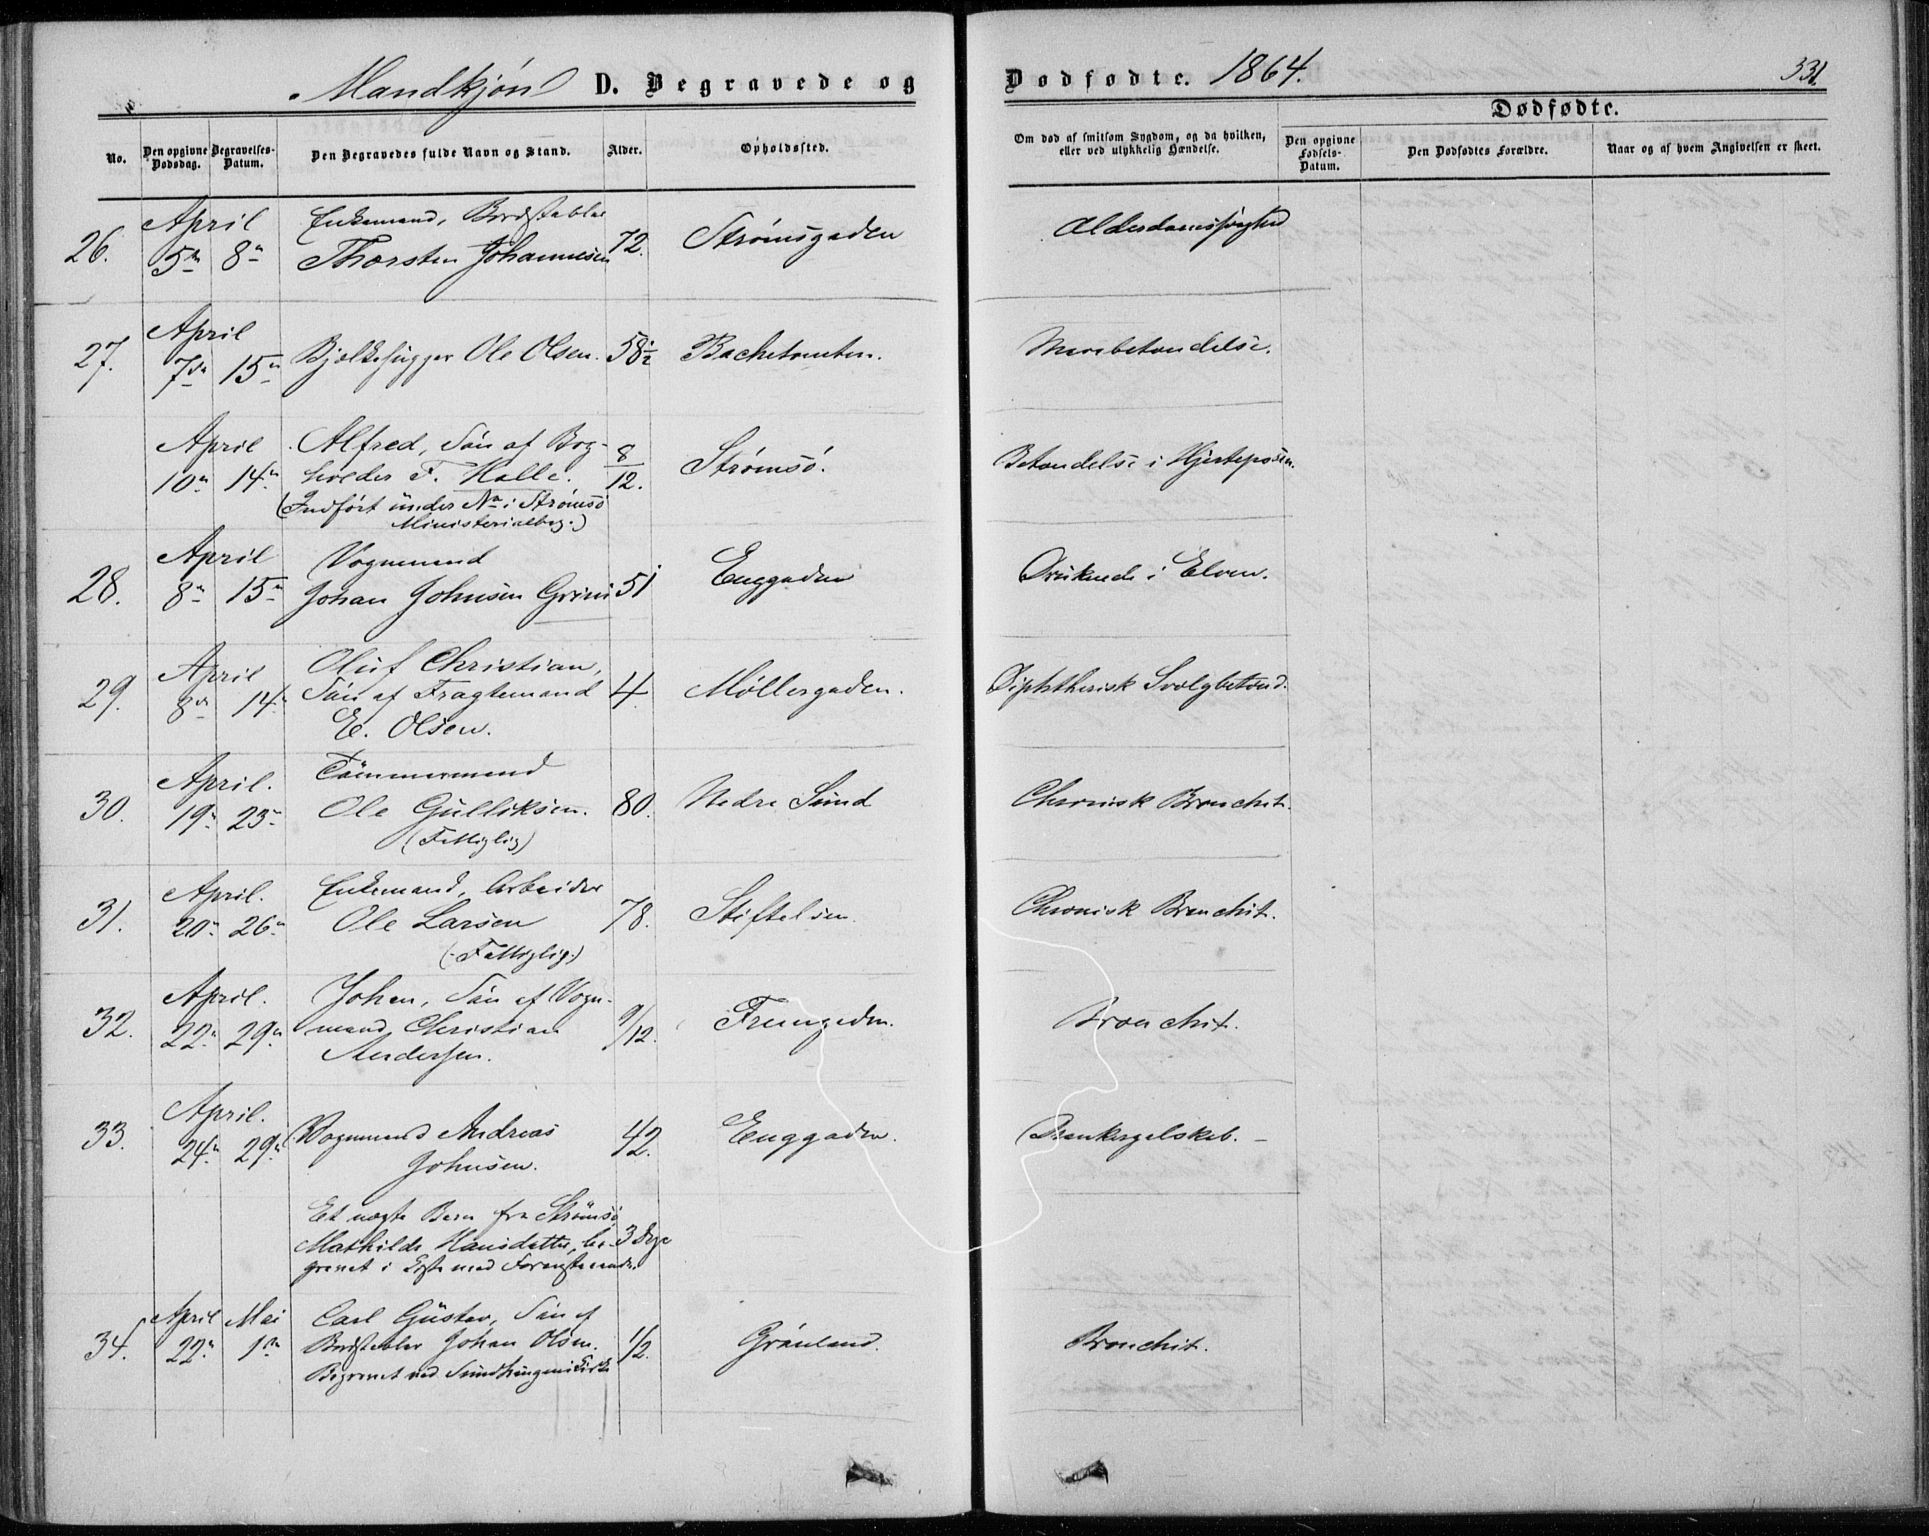 Mandkjøn D. Begravede og Dødfødte. 1864. 331.
Dødfødte.
No. Den opgivne Dødsdag. Begravelses-Datum. Den Begravedes fulde Navn og Stand. Alder. Opholdssted. Om død af smitsom Sygdom, og da hvilken, eller ved ulykkelig Hændelse. Den opgivne Fødsels-Datum. Den Dødfødtes Forældre. Naar og af hvem Angivelsen er skeet.
April Enkemand, Bordstabler
26. 5te 8de Thorsten Johannesen 72. Strømsgaden Alderdomssvaghed
April
27. 7de 15de Bjelkehugger Ole Olsen. 58½ Bachetomten. Nyrebetændelse.
April Alfred, Søn af Bog-
10de 14de holder F. Halle. 8/12. Strømsö. Betændelse i Hjerteposen.
(Indført under No i Strømsö
Ministerialbog.)
April Vognmand
28. 8de 15de Johan Johnsen Grini 51 Enggaden Druknede i Elven.
April Oluf Christian,
29. 8de 14de Søn af Fragtemand 4. Møllergaden. Diphtherisk Svælgbetænd.
E. Olsen.
April. Tömmermand
30. 19de 23de Ole Gulliksen. 80. Nedre Sund Chronisk Bronchit.
(Fattiglig)
April. Enkemand, Arbeider
31. 20de 26de Ole Larsen 78. Stiftelsen. Chronisk Bronchit.
(Fattiglig)
April. Johan, Søn af Vogn-
32. 22de 29de mand Christian 9/12. Bronchit.
Andersen.
April.
33. 24de 29de Vognmand Andreas 42. Enggaden.
Johnsen.
Et uægte Barn fra Strömsö
Mathilde Hansdatter, be- 3 Dage
gravet i med Foranstaaende.
April Mai Carl Gustav, Søn af
34. 22de 1ste Bordstabler Johan Olsen. ½. Grönland. Bronchit.
Begravet ved Sundhaugens Kirke